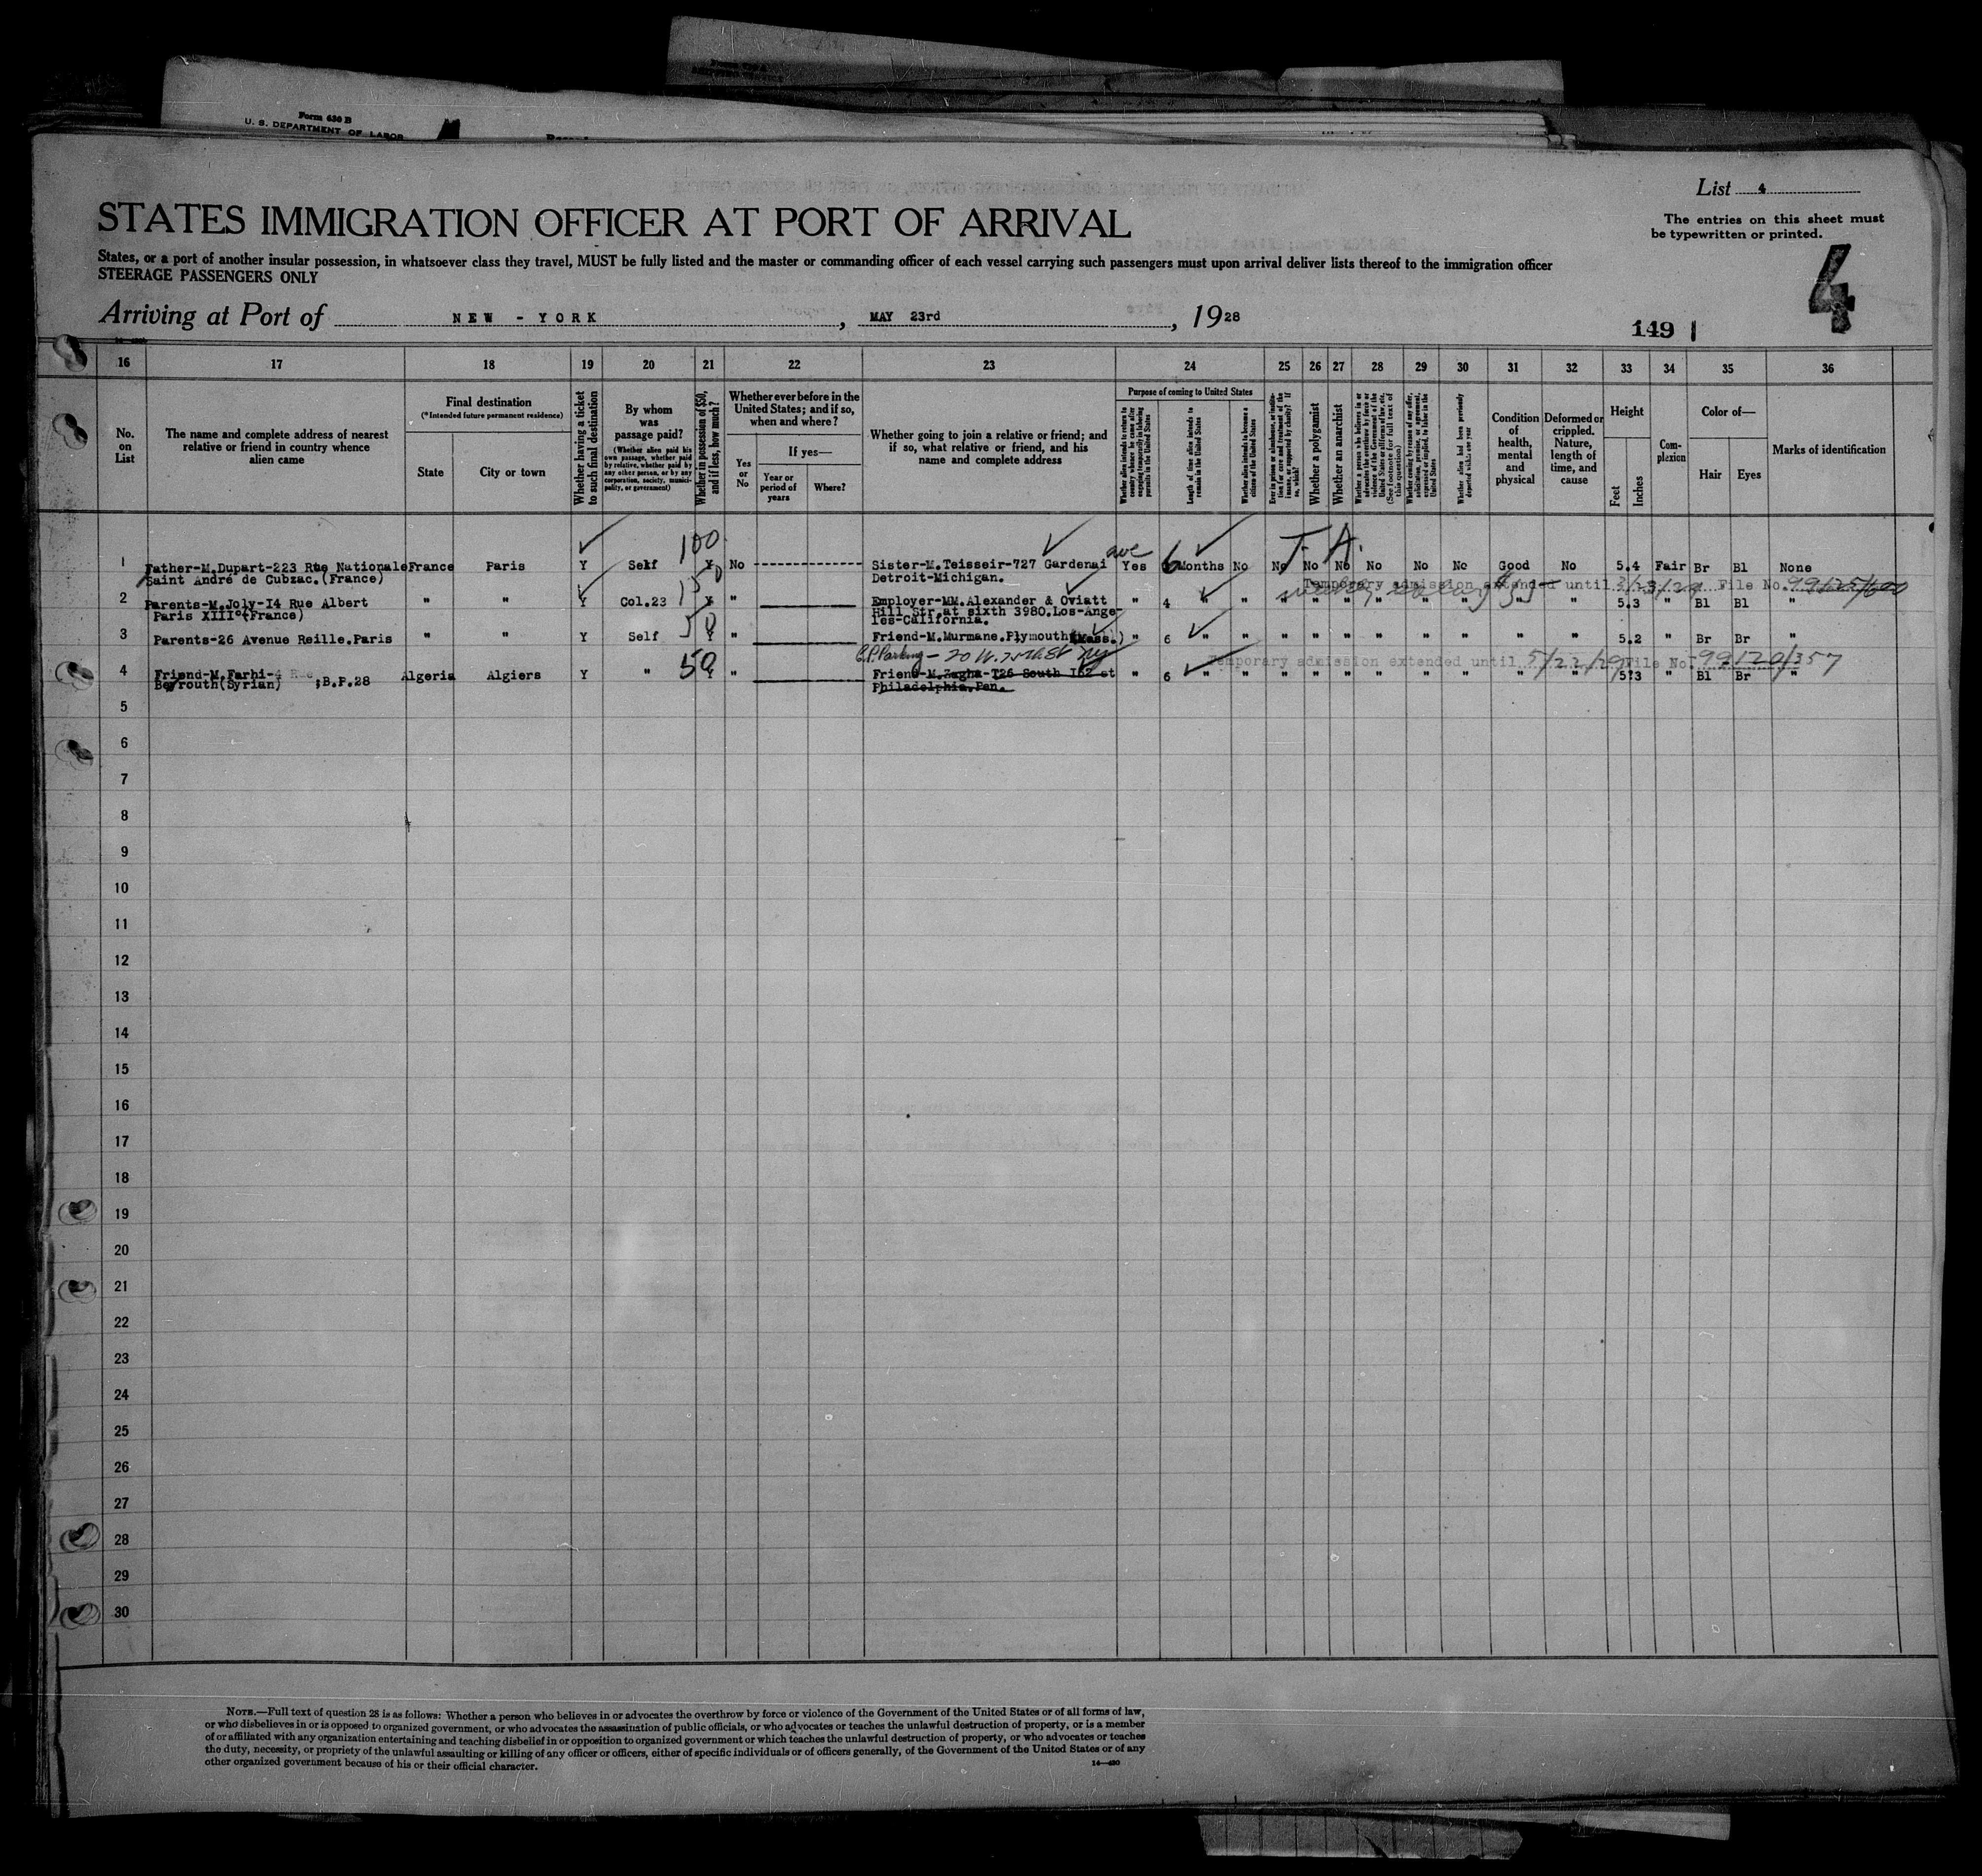 Form 630 B
U. S. DEPARTMENT OF LABOR
List 4
STATES IMMIGRATION OFFICER AT PORT OF ARRIVAL
The entries on this sheet must
be typewritten or printed.
States, or a port of another insular possession, in whatsoever class they travel, MUST be fully listed and the master or commanding officer of each vessel carrying such passengers must upon arrival deliver lists thereof to the immigration officer
STEERAGE PASSENGERS ONLY
4
Arriving at Port of NEW - YORK, MAY 23rd, 1928
149
16 17 18 19 20 21 22 23 24 25 26 27 28 29 30 31 32 33 34 35 36
No. on List
The name and complete address of nearest relative or friend in country whence alien came
Final destination
(*Intended future permanent residence)
State
City or town
Whether having a ticket to such final destination
By whom was passage paid?
(Whether alien paid his own passage, whether paid by relative, whether paid by any other person, or by any corporation, society, municipality, or government)
Whether in possession of $50, and if less, how much?
Whether ever before in the United States; and if so, when and where?
Yes or No
If yes—
Year or period of years
Where?
Whether going to join a relative or friend; and if so, what relative or friend, and his name and complete address
Purpose of coming to United States
Whether alien intends to return to country whence he came after engaging temporarily in laboring pursuits in the United States
Length of time alien intends to remain in the United States
Whether alien intends to become a citizen of the United States
Ever in prison or almshouse, or institution for care and treatment of the insane, or supported by charity? If so, which?
Whether a polygamist
Whether an anarchist
Whether a person who believes in or advocates the overthrow by force or violence of the Government of the United States or all forms of law, etc. (See footnote for full text of this question)
Whether coming by reason of any offer, solicitation, promise, or agreement, expressed or implied, to labor in the United States
Whether alien had been previously deported within one year
Condition of health, mental and physical
Deformed or crippled. Nature, length of time, and cause
Height
Feet
Inches
Complexion
Color of—
Hair
Eyes
Marks of identification
100 ave 6 T. A.
1 Father-M.Dupart-223 Rue Nationale France Paris Y Self Y No Sister-M.Teisseir-727 Gardenai Yes Months No No No No No No No Good No 5.4 Fair Br Bl None
Saint André de Cubzac.(France) Detroit-Michigan.
Temporary admission extended until File No.
2 Parents-M.Joly-I4 Rue Albert " " Y Col.23 150 Y " Employer-MM.Alexander & Oviatt " 4 " " " " " " " " " " 5.3 " Bl Bl "
Paris XIII°(France) Hill Str.at sixth 3980.Los-Ange-
les-California.
3 Parents-26 Avenue Reille.Paris " " Y Self 50 Y " Friend-M.Murmane.Plymouth(Mass.) " 6 " " " " " " " " " " 5.2 " Br Br "
Temporary admission extended until 5/22/29 File No. 99120/357
4 Friend-M.Farhi-4 Rue ;B.P.28 Algeria Algiers Y " 50 " Friend-M.Zagha-I26 South I62 st " 6 " " " " " " " " " " 5.3 " Bl Br "
Beyrouth(Syrian) Philadelphia.Pen.
5
6
7
8
9
10
11
12
13
14
15
16
17
18
19
20
21
22
23
24
25
26
27
28
29
30
NOTE.—Full text of question 28 is as follows: Whether a person who believes in or advocates the overthrow by force or violence of the Government of the United States or of all forms of law,
or who disbelieves in or is opposed to organized government, or who advocates the assassination of public officials, or who advocates or teaches the unlawful destruction of property, or is a member
of or affiliated with any organization entertaining and teaching disbelief in or opposition to organized government or which teaches the unlawful destruction of property, or who advocates or teaches
the duty, necessity, or propriety of the unlawful assaulting or killing of any officer or officers, either of specific individuals or of officers generally, of the Government of the United States or of any
other organized government because of his or their official character.
14—430